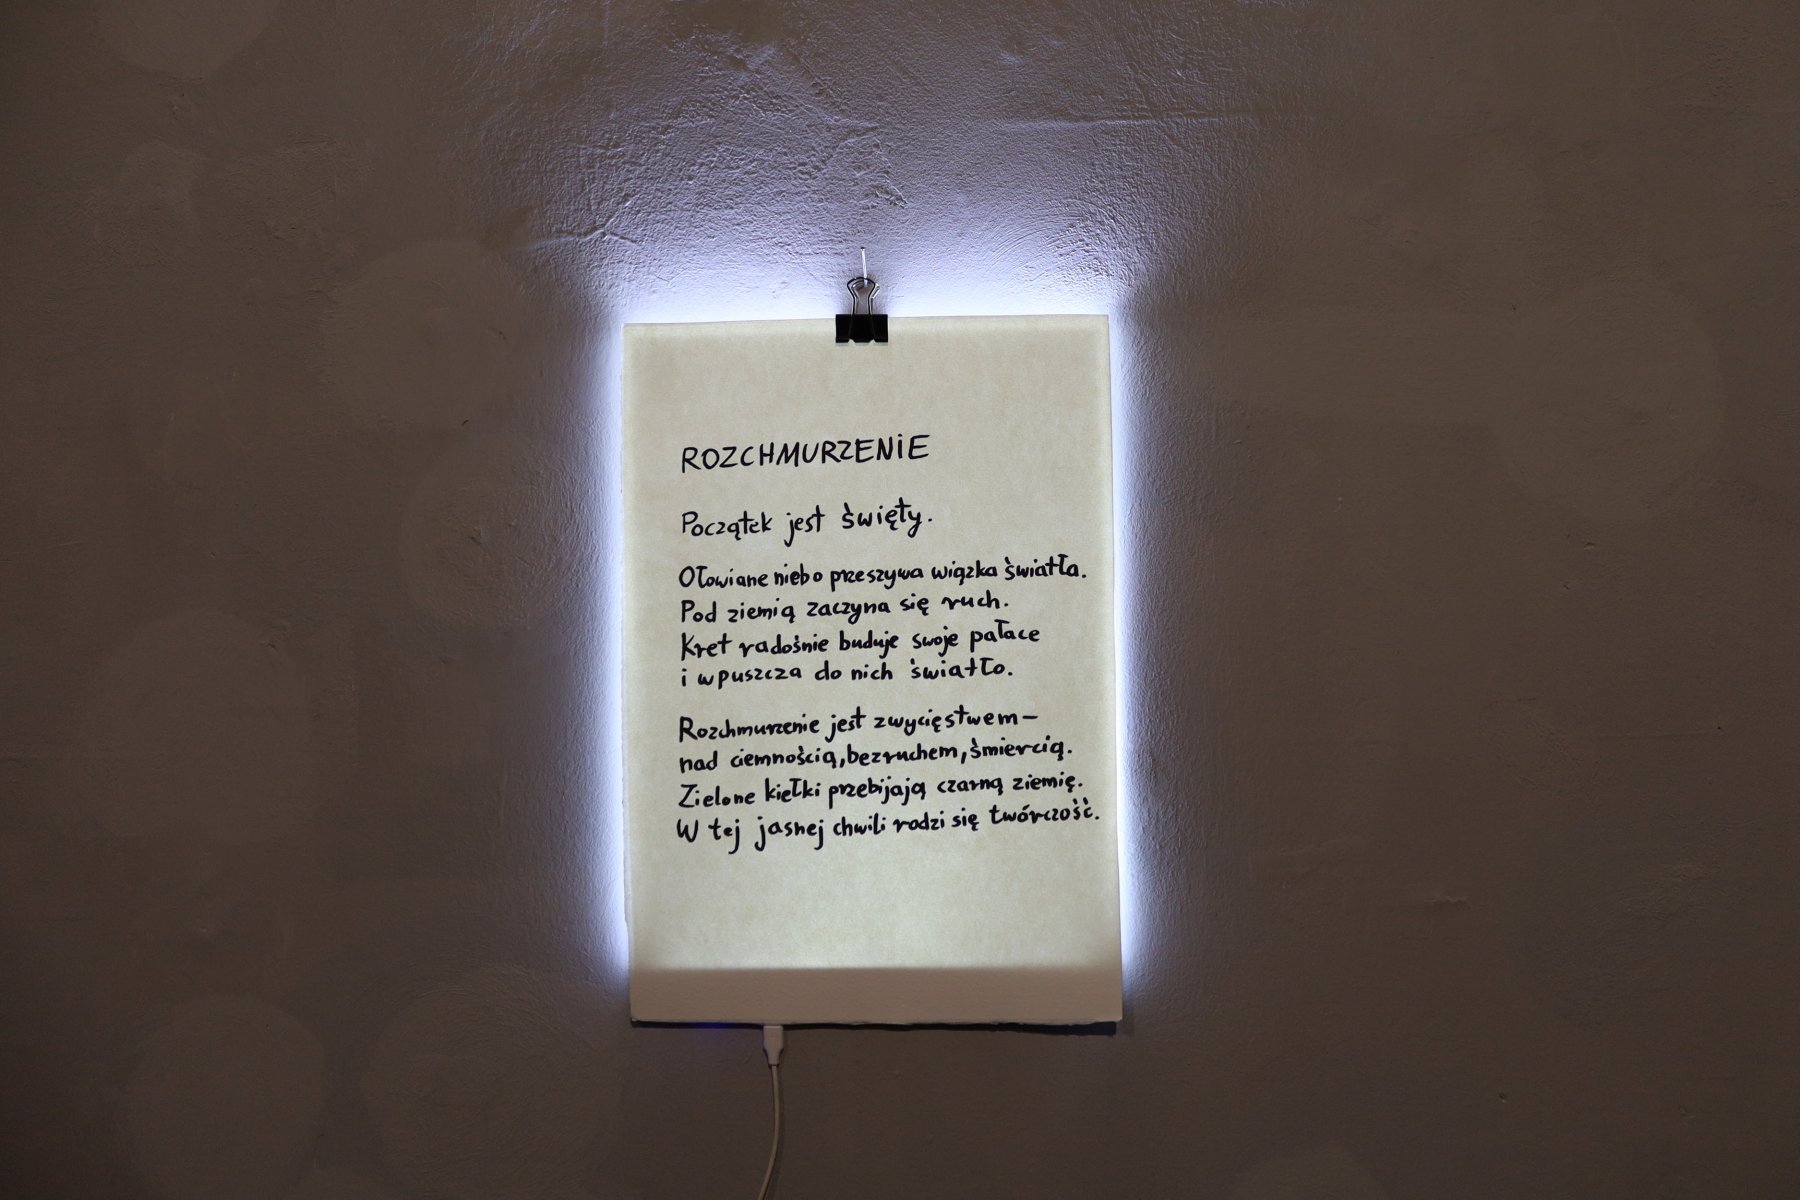 ROZCHMURZENiE
Początek jest święty.
Ołowiane niebo przeszywa wiązka światła.
Pod ziemią zaczyna się ruch.
Kret radośnie buduje swoje pałace
i wpuszcza do nich światło.
Rozchmurzenie jest zwycięstwem –
nad ciemnością, bezruchem, śmiercią.
Zielone kiełki przebijają czarną ziemię.
W tej jasnej chwili rodzi się twórczość.